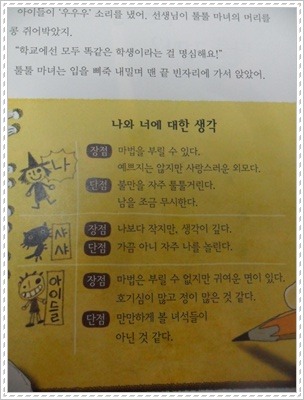 아이들이 '우우우' 소리를 냈어. 선생님이 툴툴 마녀의 머리를
콩 쥐어박았지.
"학교에선 모두 똑같은 학생이라는 걸 명심해요!"
툴툴 마녀는 입을 삐죽 내밀며 맨 끝 빈자리에 가서 앉았어.
나와 너에 대한 생각
나
장점 마법을 부릴 수 있다.
예쁘지는 않지만 사랑스러운 외모다.
단점 불만을 자주 툴툴거린다.
남을 조금 무시한다.
샤샤
장점 나보다 작지만, 생각이 깊다.
단점 가끔 아니 자주 나를 놀린다.
아이들
장점 마법은 부릴 수 없지만 귀여운 면이 있다.
호기심이 많고 정이 많은 것 같다.
단점 만만하게 볼 녀석들이
아닌 것 같다.